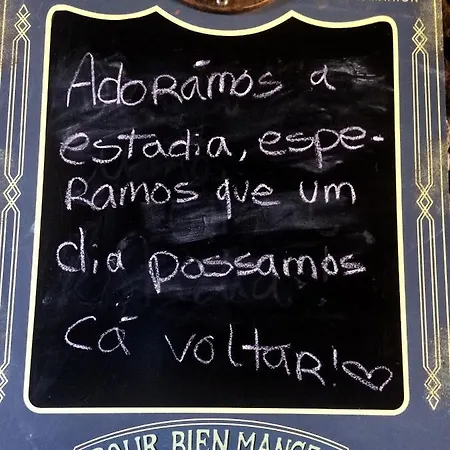 Adorámos a
estadia, espe-
ramos que um
dia possamos
cá voltar!♡
POUR BIEN MANGE